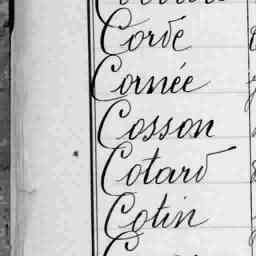 Cordé
Cornée
Cosson
Cotard
Cotin